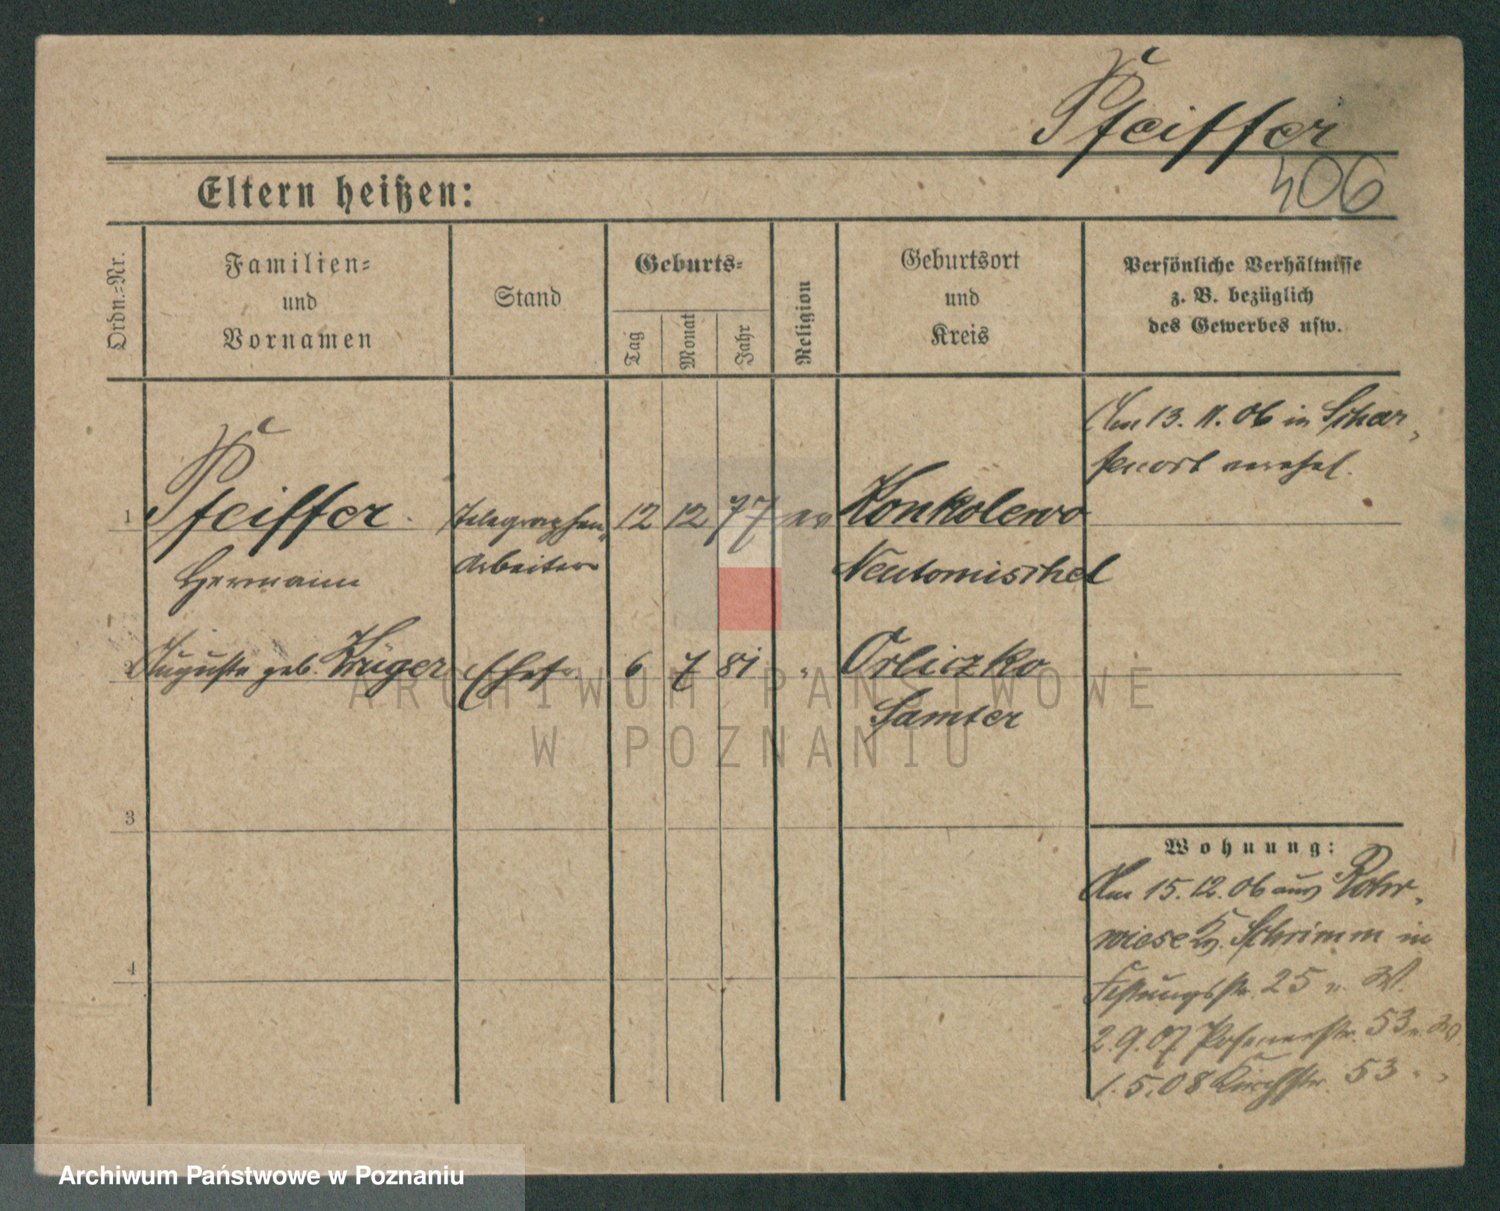 Pfeiffer
406
Eltern heißen:
Ordn.-Nr.
Familien-
und
Vornamen
Stand
Geburts-
Tag
Monat
Jahr
Religion
Geburtsort
und
Kreis
Persönliche Verhältnisse
z. B. bezüglich
des Gewerbes usw.
Am 13. 11. 06 in Schar-
fenort verehel.
1 Pfeiffer Telegraphen- 12 12 77 ev Konkolewo
Hermann Arbeiter Neutomischel
2 Auguste geb. Krüger Ehefr 6 7 81 " Orliczko
Samter
3
4
Wohnung:
Am 15. 12. 06 aus Rohr-
wiese Kr. Schrimm in
Festungsstr. 25 n. W.
2. 9. 07 Posenerstr. 53 n. W.
1. 5. 08 Kirchstr. 53 " "
ARCHIWUM PAŃSTWOWE
W POZNANIU
Archiwum Państwowe w Poznaniu